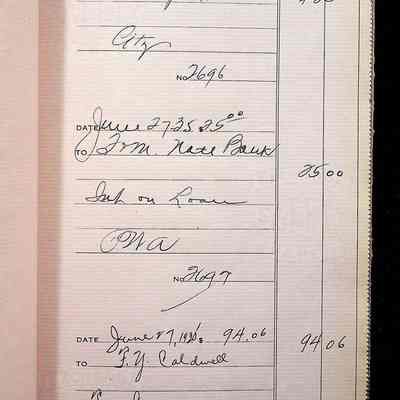 City
No 2696
DATE June 27 35 25 00
TO F&M. Natl Bank
25 00
Int on Loan
PWA
No 2697
DATE June 27, 1935 94.06
94 06
TO F. Y. Caldwell